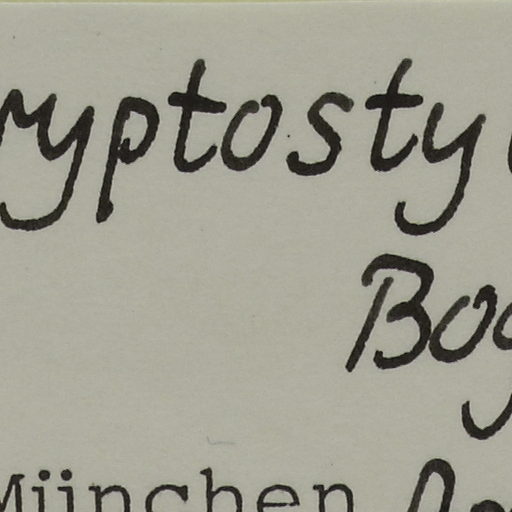 ryptosty
Bog
München